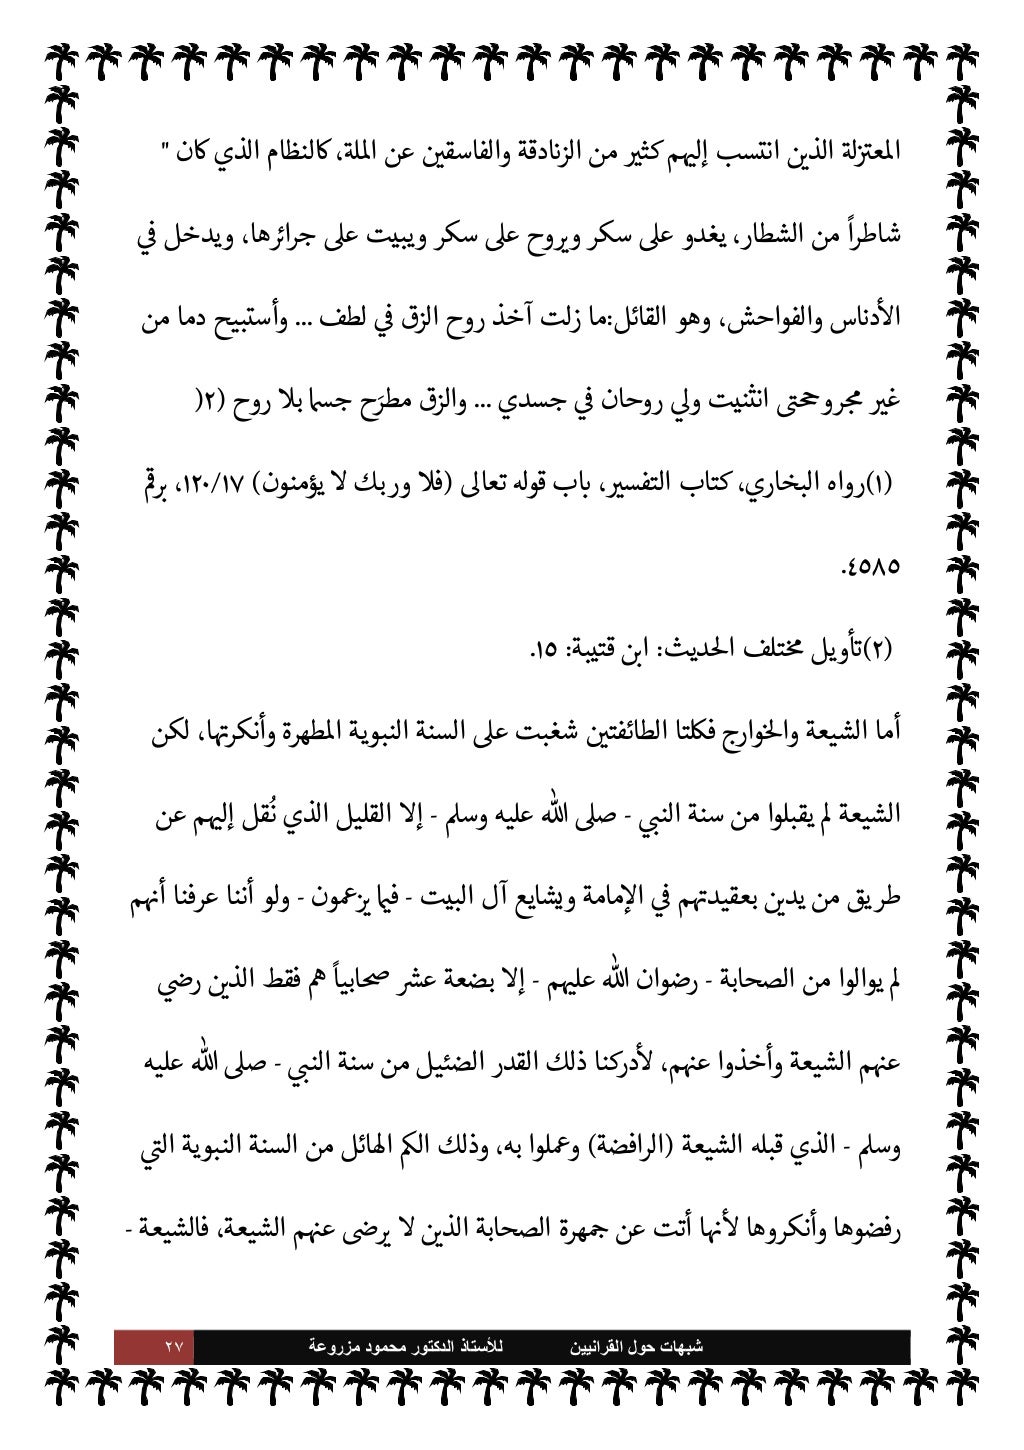 المعتزلة الذين انتسب إليهم كثير من الزنادقة والفاسقين عن الملة، كالنظام الذي كان "
شاطراً من الشطار، يغدو على سكر ويروح على سكر ويبيت على جرائرها، ويدخل في
الأدناس والفواحش، وهو القائل:ما زلت آخذ روح الزق في لطف ... وأستبيح دما من
غير مجروححتى انثنيت ولي روحان في جسدي ... والزق مطرَح جسما بلا روح (٢(
(١)رواه البخاري، كتاب التفسير، باب قوله تعالى (فلا وربك لا يؤمنون) ١٢٠/١٧، برقم
٤٥٨٥.
(٢)تأويل مختلف الحديث: ابن قتيبة: ١٥.
أما الشيعة والخوارج فكلتا الطائفتين شغبت على السنة النبوية المطهرة وأنكرتها، لكن
الشيعة لم يقبلوا من سنة النبي - صلى الله عليه وسلم - إلا القليل الذي نُقل إليهم عن
طريق من يدين بعقيدتهم في الإمامة ويشايع آل البيت - فيما يزعمون - ولو أننا عرفنا أنهم
لم يوالوا من الصحابة - رضوان الله عليهم - إلا بضعة عشر صحابياً هم فقط الذين رضي
عنهم الشيعة وأخذوا عنهم، لأدركنا ذلك القدر الضئيل من سنة النبي - صلى الله عليه
وسلم - الذي قبله الشيعة (الرافضة) وعملوا به، وذلك الكم الهائل من السنة النبوية التي
رفضوها وأنكروها لأنها أتت عن جمهرة الصحابة الذين لا يرضى عنهم الشيعة، فالشيعة -
شبهات حول القرانيين للأستاذ الدكتور محمود مزروعة ٢٧